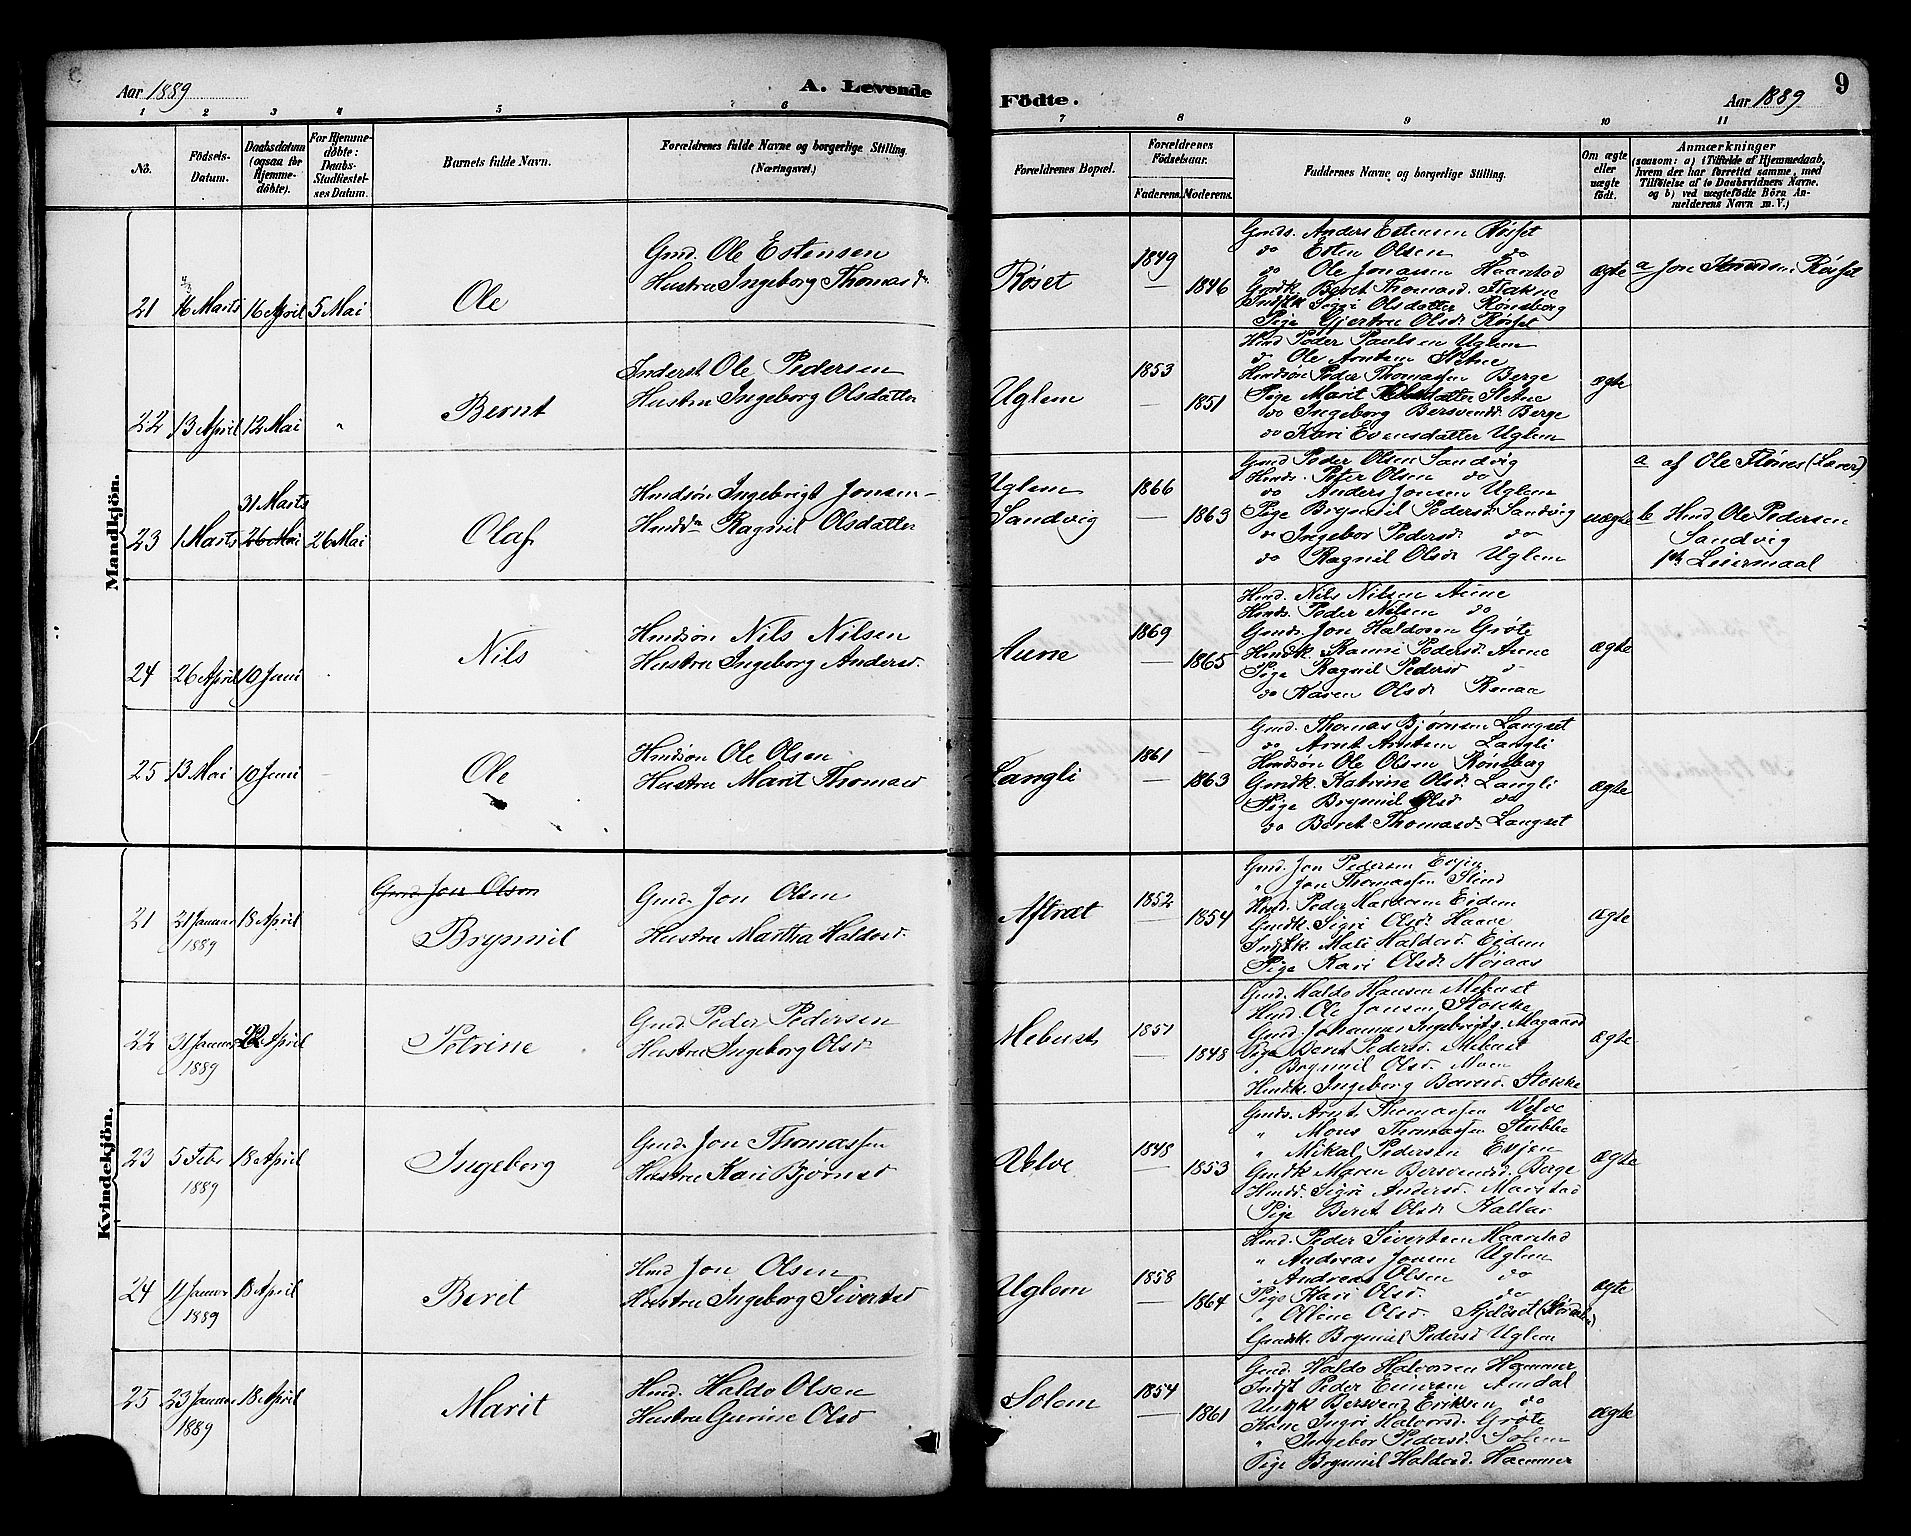 Aar 1889
A. Levende
Födte.
Aar 1889
9
1 2 3 4 5 6 7 8 9 10 11
No.
Födsels-Datum.
Daabsdatum (ogsaa for Hjemme-döbte).
For Hjemme-döbte: Daabs-Stadfæstelses Datum.
Barnets fulde Navn.
Forældrenes fulde Navne og borgerlige Stilling. (Næringsvei.)
Forældrenes Bopæl.
Forældrenes Födselsaar.
Faderens. Moderens.
Faddernes Navne og borgerlige Stilling.
Om ægte eller uægte födt.
Anmærkninger
(saasom: a) i Tilfælde af Hjemmedaab,
hvem der har forrettet samme, med
Tilföielse af to Daabsvidners Navne.
og b) ved uægtefödte Börn An-
melderens Navn m. V.)
Mandkjön.
21 16 Marts 16 April 5 Mai
Ole
Gmd. Ole Estensen
Hustru Ingeborg Thomasdr
Røset
1849
1846
Gmds. Anders Estensen Røset
do Esten Olsen do
do Ole Jonassen Haarstad
Gmdk. Beret Thomasd. Flakne
Indstk Sigri Olsdatter Rønsberg
Pige Gjertru Olsd. Røset
ægte
a Jon Røset
22 13 April 12 Mai "
Bernt
Inderst Ole Pedersen
Hustru Ingeborg Olsdatter
Uglem
1853
1851
Hmd Peder Paulsen Uglem
do Ole Arntsen Stetne
Hmdsön Peder Thomassen Berge
Pige Marit Olsdatter Stetne
do Ingeborg Bersvendsd. Berge
do Kari Evensdatter Uglem
ægte
23 1 Marts 31 Marts 26 Mai 26 Mai
Olaf
Hmdsön Ingebrigt Jonsen
Hmddr Ragnil Olsdatter
Uglem
Sandvig
1866
1863
Gmd Peder Olsen Sandvig
Hmds. Peter Olsen do
do Anders Jonsen Uglem
Pige Brynnil Pedersd Sandvig
do Ingebor Pedersd do
do Ragnil Olsd. Uglem
uægte
a af Ole Flønes (Lærer)
b Hmd Ole Pedersen
Sandvig
1ste Leiermaal
24 26 April 10 Juni
Nils
Hmdsön Nils Nilsen
Hustru Ingeborg Andersd.
Aune
1869
1865
Hmd. Nils Nilsen Aune
Hmds. Peder Nilsen do
Gmds Jon Haldosen Grøte
Hmdk. Ranni Pedersd. Aune
Pige Ragnil Pedersd do
do Karen Olsd. Renaa
ægte
25 13 Mai 10 Juni
Ole
Hmdsön Ole Olsen
Hustru Marit Thomasd
Langli
1861
1863
Gmd. Thomas Bjørnsen Langset
do Arnt Arntsen Langli
Hmdsön Ole Olsen Rønsberg
Gmdk. Katrine Olsd. Langli
Pige Brynnil Olsd do
do Beret Thomasd. Langset
ægte
Kvindekjön.
21 21 Januar 1889 18 April
Gmd. Jon Olsen
Brynnil
Gmd. Jon Olsen
Hustru Martha Haldosd.
Aftret
1852
1854
Gmd. Jon Pedersen Evjen
" Jon Thomassen Slind
Hmd. Peder Eidem
Gmdk. Sigri Olsd. Haave
Indstk. Mali Haldosd. Eidem
Pige Kari Olsd. Moiaas
ægte
22 31 Januar 1889 22 April
Petrine
Gmd. Peder Pedersen
Hustru Ingeborg Olsd.
Mebust
1851
1848
Gmd. Haldo Hansen Mebust
Hmd. Ole Jonsen Stokke
Gmd. Johannes Ingebrigts. Mogaard
Pige Beret Pedersd. Mebust
" Brynnil Olsd. Moen
Hmdk. Ingeborg Stokke
ægte
23 5 Febr 1889 18 April
Ingeborg
Gmd. Jon Thomassen
Hustru Kari Bjørnsd
Velve
1848
1853
Gmds. Arnt Thomassen Velve
" Mons Thomassen Stubbe
" Mikal Pedersen Evjen
Gmdk Maren Bersvendsd. Berge
Hmdd. Sigri Andersd. Marstad
Pige Beret Olsd. Kallar
ægte
24 11 Januar 1889 18 April
Beret
Hmd Jon Olsen
Hustru Ingeborg Sivertsd
Uglem
1858
1864
Hmd. Peder Sivertsen Haarstad
" Andreas Jonsen Uglem
" Andreas Olsen do
Pige Kari Olsd. do
" Oline Olsd.
Gmdk. Brynnil Pedersd Uglem
ægte
25 23 Januar 1889 18 April
Marit
Hmd. Haldo Olsen
Hustru Gurine Olsd
Solem
1854
1861
Gmd. Haldo Halvorsen Hammer
Indst Peder Einersen Amdal
Ungk Bersvend Eriksen do
Kone Ingri Halvorsd. Grøte
" Ingebor Pedersd. Solem
Pige Brynnil Haldosd. Hammer
ægte